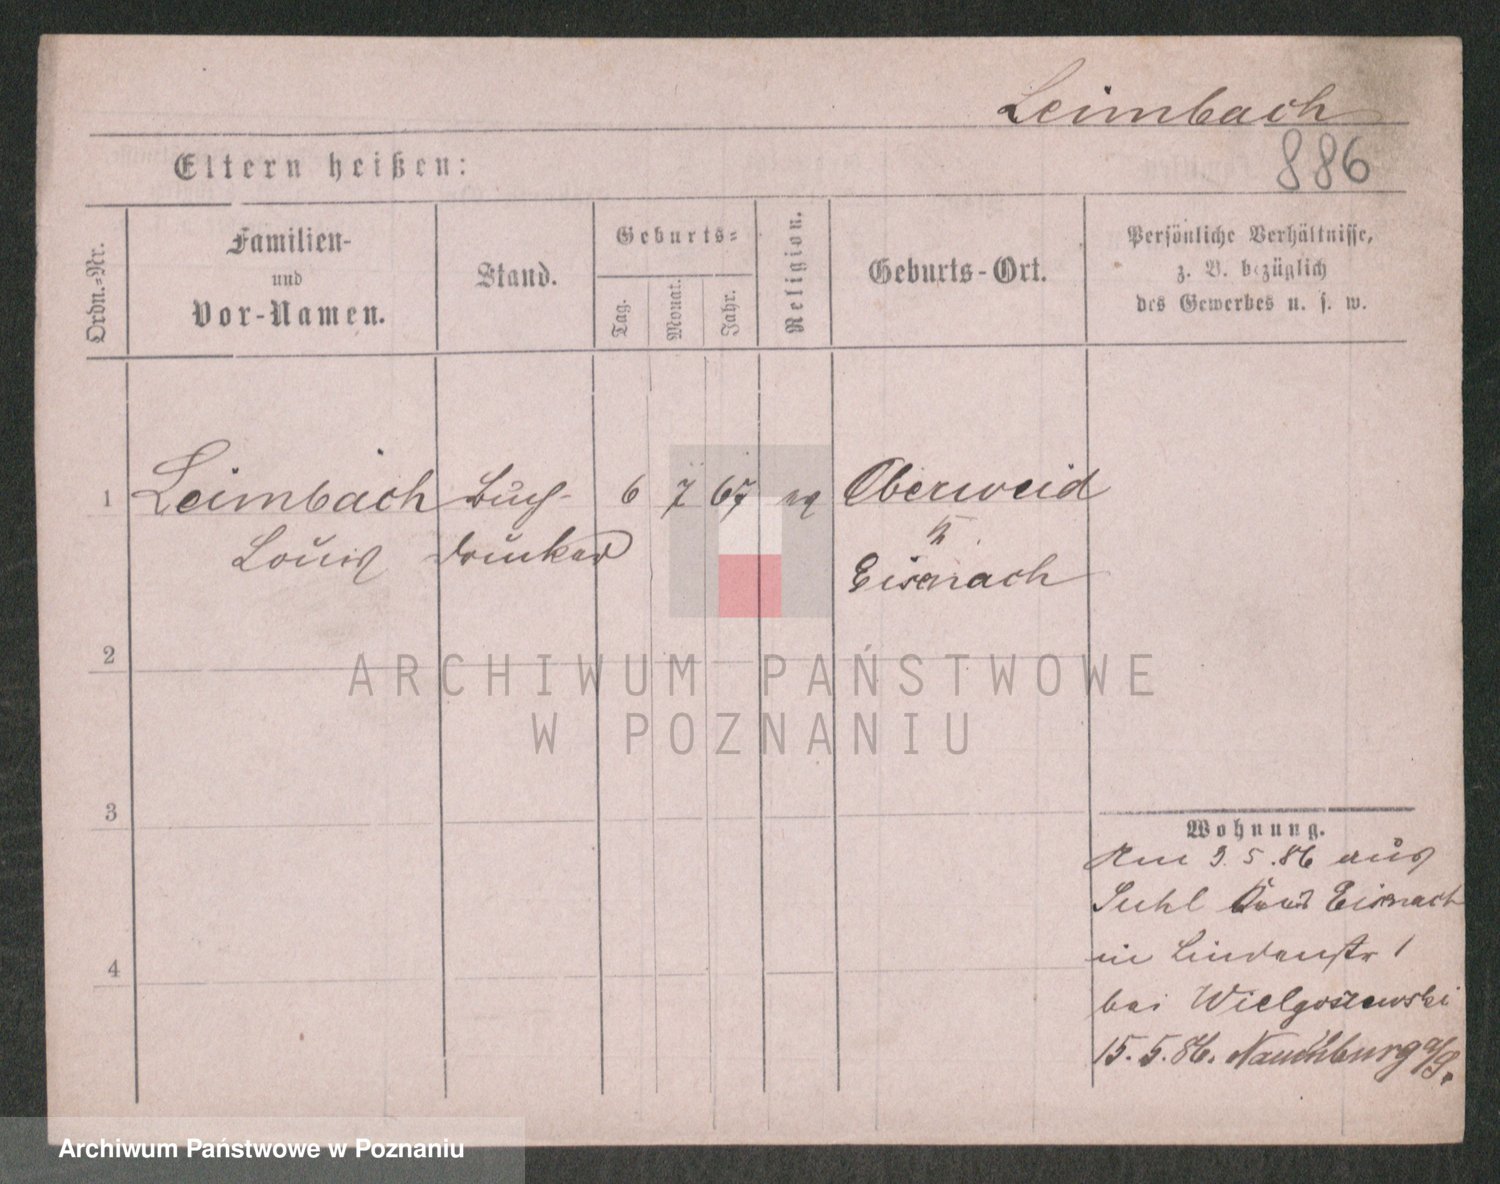 Leimbach
886
Eltern heißen:
Ordn.-Nr.
Familien-
und
Vor-Namen.
Stand.
Geburts-
Tag.
Monat.
Jahr.
Religion.
Geburts-Ort.
Persönliche Verhältnisse,
z. B. bezüglich
des Gewerbes u. s. w.
1 Leimbach Buch- 6 7 67 Oberweid
Louis drucker
Eisenach
2
3
4
Wohnung.
Am 9.5.86 aus
Suhl Eisenach
in Lindenstr 1
bei Wielgoszewski
15.5.86. Naumburg a/S.
ARCHIWUM PAŃSTWOWE
W POZNANIU
Archiwum Państwowe w Poznaniu